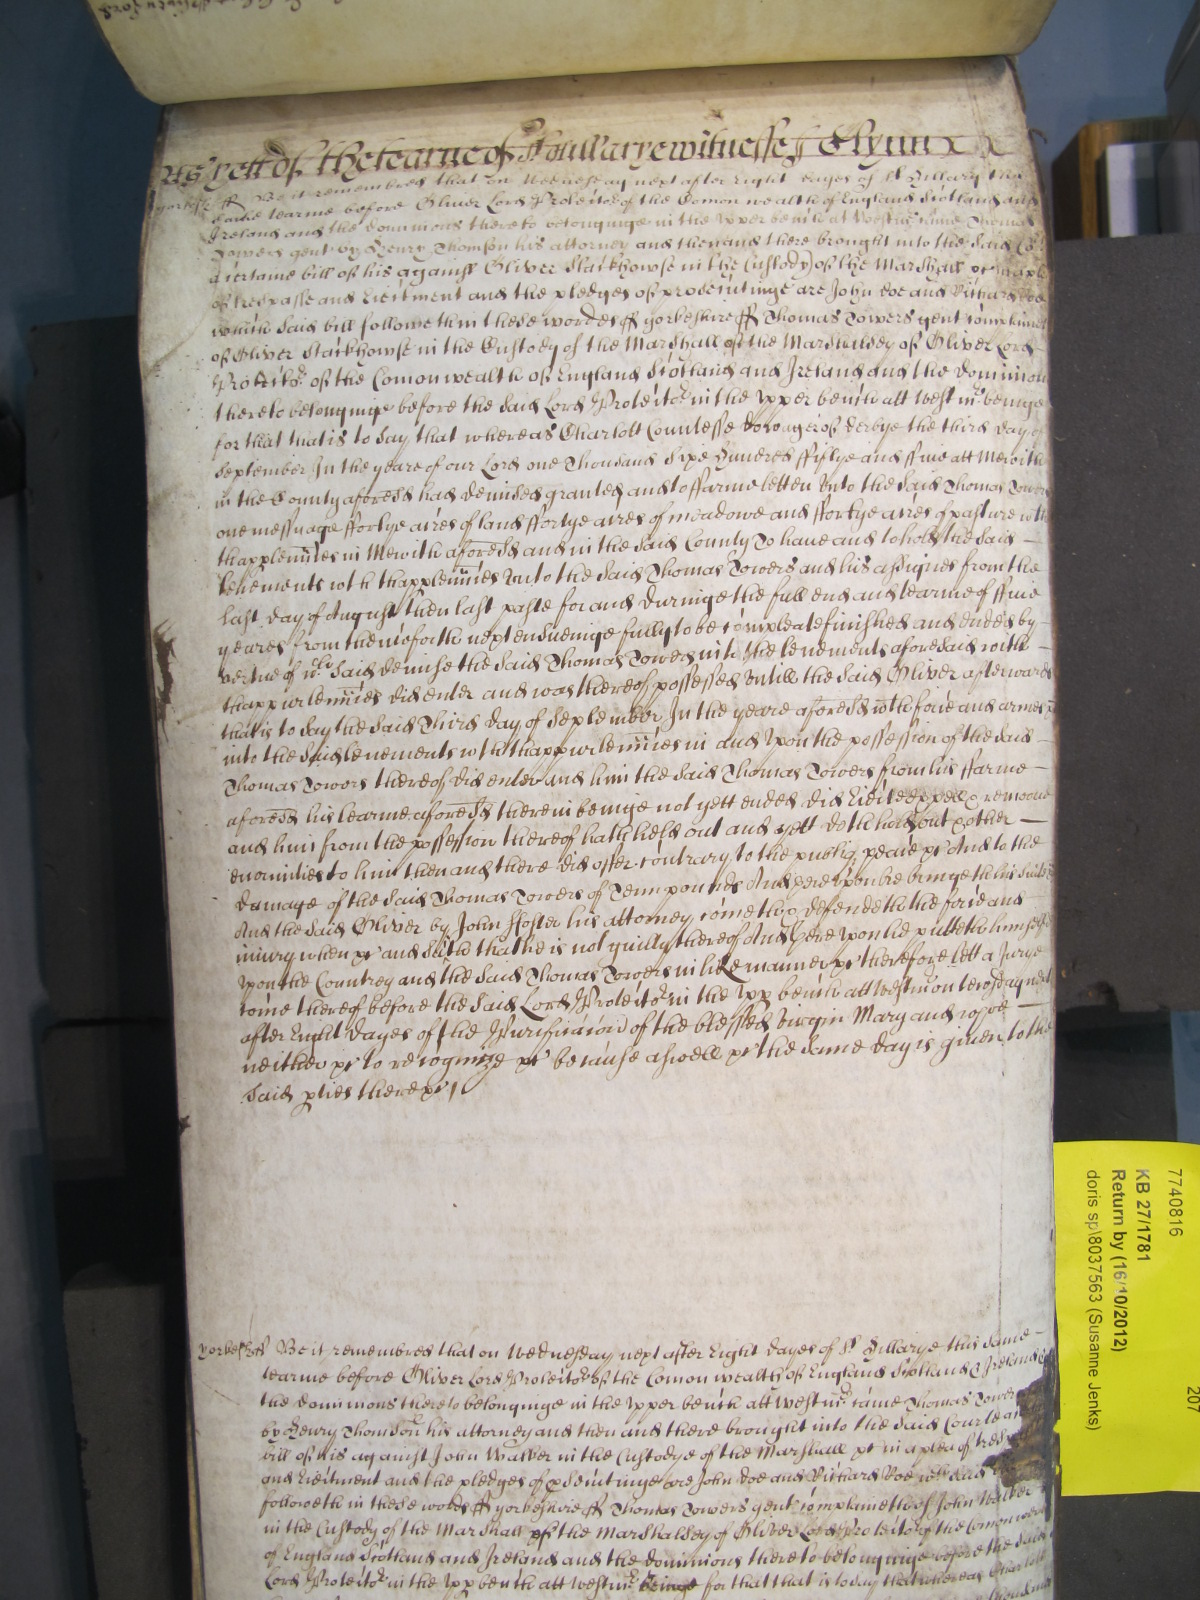 As yett of the tearme of St Hillary witnesse Glynn
yorkesh ss Be it remembred that on Wednesday next after Eight dayes of St Hillary this
same tearme before Oliver Lord Protector of the Comon wealth of England Scotland and
Ireland and the dominions thereto belonginge in the upper bench att Westmr came Thomas
Towers gent by Henry Thomson his attorney and then and there brought into the said
a certaine bill of his against Oliver Stackhowse in the Custody of the Marshall &c
of trespasse and Eiectment and the pledges of prosecutinge are John doe and Richard Roe
which said bill followeth in these wordes ss yorkeshire ss Thomas Towers gent complaineth
of Oliver Stackhowse in the Custody of the Marshall of the Marshalsey of Oliver Lord
Protector of the Comon wealth of England Scotland and Ireland and the dominions
thereto belonginge before the said Lord Protector in the upper bench att Westmr beinge
for that that is to say that whereas Charlott Countesse dowager of derbye the third day of
September In the yeare of our Lord one Thousand Sixe Hundred ffiftye and ffive att Mewith
in the County aforesd had demised granted and to ffarme letten unto the said Thomas Towers
one messuage ffortye acres of land ffortye acres of meadowe and ffortye acres of pasture with
thapptennces in Mewith aforesd and in the said County To have and to hold the said
tenements with thapptennces unto the said Thomas Towers and his assignes from the
last day of August then last paste for and duringe the full end and tearme of ffive
yeares from thenceforth next ensueinge fully to be compleate finished and ended by
vertue of wch said demise the said Thomas Towers into the tenements aforesaid with
thappurtennces did enter and was thereof possessed untill the said Oliver afterwards
that is to say the said Third day of September In the yeare aforesd with force and armes &c
into the said tenements with thappurtennces in and upon the possession of the said
Thomas Towers thereof did enter and him the said Thomas Towers from his ffarme
aforesd his tearme aforesd therein beinge not yett ended did Eiect expell & remoove
and him from the possession thereof hath held out and yett doth hold out & other
enormities to him then and there did offer contrary to the publiq peace &c And to the
damage of the said Thomas Towers of Tenn pounds And hereupon he bringe this suite &c
And the said Oliver by John ffoster his attorney cometh & defendeth the force and
iniury when &c and saith that he is not guilty thereof And Here upon he putteth himselfe
upon the Countrey and the said Thomas Towers in like manner &c therefore lett a Jurye
come thereof before the said Lord Protector in the upp bench att Westmr on
after Eight dayes of the Purificacion of the blessed virgin Mary and
neither &c to recognize &c because aswell &c the same day is given to the
said pties there &c
yorkesh ss Be it remembred that on Wednesday next after Eight dayes of St Hillarye this same
tearme before Oliver Lord Protector of the Comon wealth of England Scotland & Ireland
the dominions thereto belonginge in the upper bench att Westmr came Thomas Towers
by Henry Thomson his attorney and then and there brought into the said Courte a
bill of his against John Walker in the Custodye of the Marshall &c in a plea of
and Eiectment and the pledges of psecutinge are John doe and Richard Roe
followeth in these words ss yorkeshire ss Thomas Towers gent complaineth of John Walker
in the Custody of the Marshall of the Marshalsey of Oliver Lord Protector of the Comon
of England Scotland and Ireland and the dominions thereto belonginge before the said
Lord Protector in the upp bench att Westmr beinge for that that is to say that whereas
7740816
KB 27/1781
Return by (16/10/2012)
doris sp\8037563 (Susanne Jenks)
207